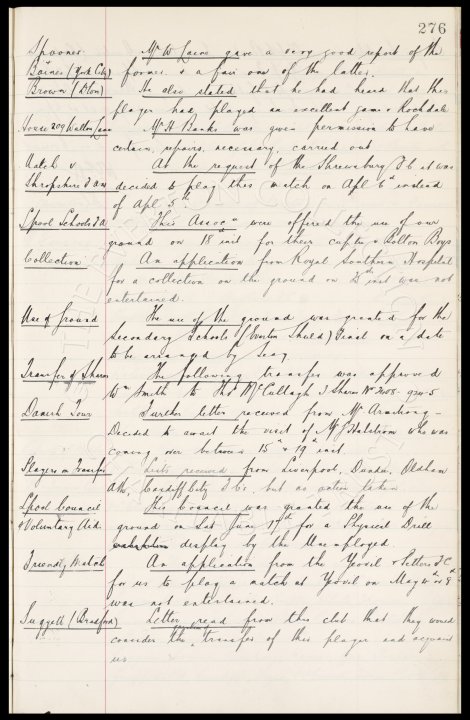 276
Spooner. Mr W Caine gave a very good report of the
Baines (York City) former & a fair one of the latter.
Brown (Alloa) He also stated that he had heard that this
player had played an excellent game v Rochdale
House 209 Walton Lane Mr H Banks was given permission to have
certain repairs, necessary, carried out
Match v At the request of the Shrewsbury F C it was
Shropshire F Assn decided to play this match on Apl 6th instead
of Apl 5th.
Lpool Schools F A This Assocn were offered the use of our
ground on 18th inst for their cuptie v Bolton Boys
Collection An application from Royal Southern Hospital
for a collection on the ground on inst was not
entertained.
Use of Ground The use of the ground was granted for the
Secondary Schools (Everton Shield) Final on a date
to be arranged by Secy
Transfer of Shares The following transfer was approved
Wm Smith to Thos McCullagh 3 Shares No
Danish Tour Further letter received from Mr Armstrong -
Decided to await the visit of Mr who was
coming over between 15th & 19th inst.
Players on Transfer Lists received from Liverpool, Dundee, Oldham
Ath, Cardiff City F Cs, but no action taken
Lpool Council This Council was granted the use of the
& Voluntary Aid. ground on Sat June 1st for a Physical Drill
display by the Unemployed.
Friendly Match An application from the Yeovil & Petters F C
for us to play a match at Yeovil on May
was not entertained.
Suggett (Bradford) Letter read from this club that they would
consider the question of transfer of this player and acquaint
us